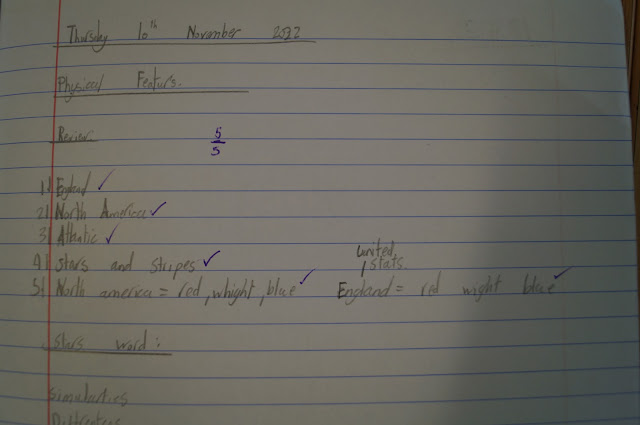 Thursday 10th November 2022
Physical Featurs.
Review:
5/5
1) England ✓
2) North America ✓
3) Atlantic ✓
4) Stars and stripes ✓
united stats.
5) North america = red, whight, blue ✓ England = red wight blue ✓
Stars word:
Similarties